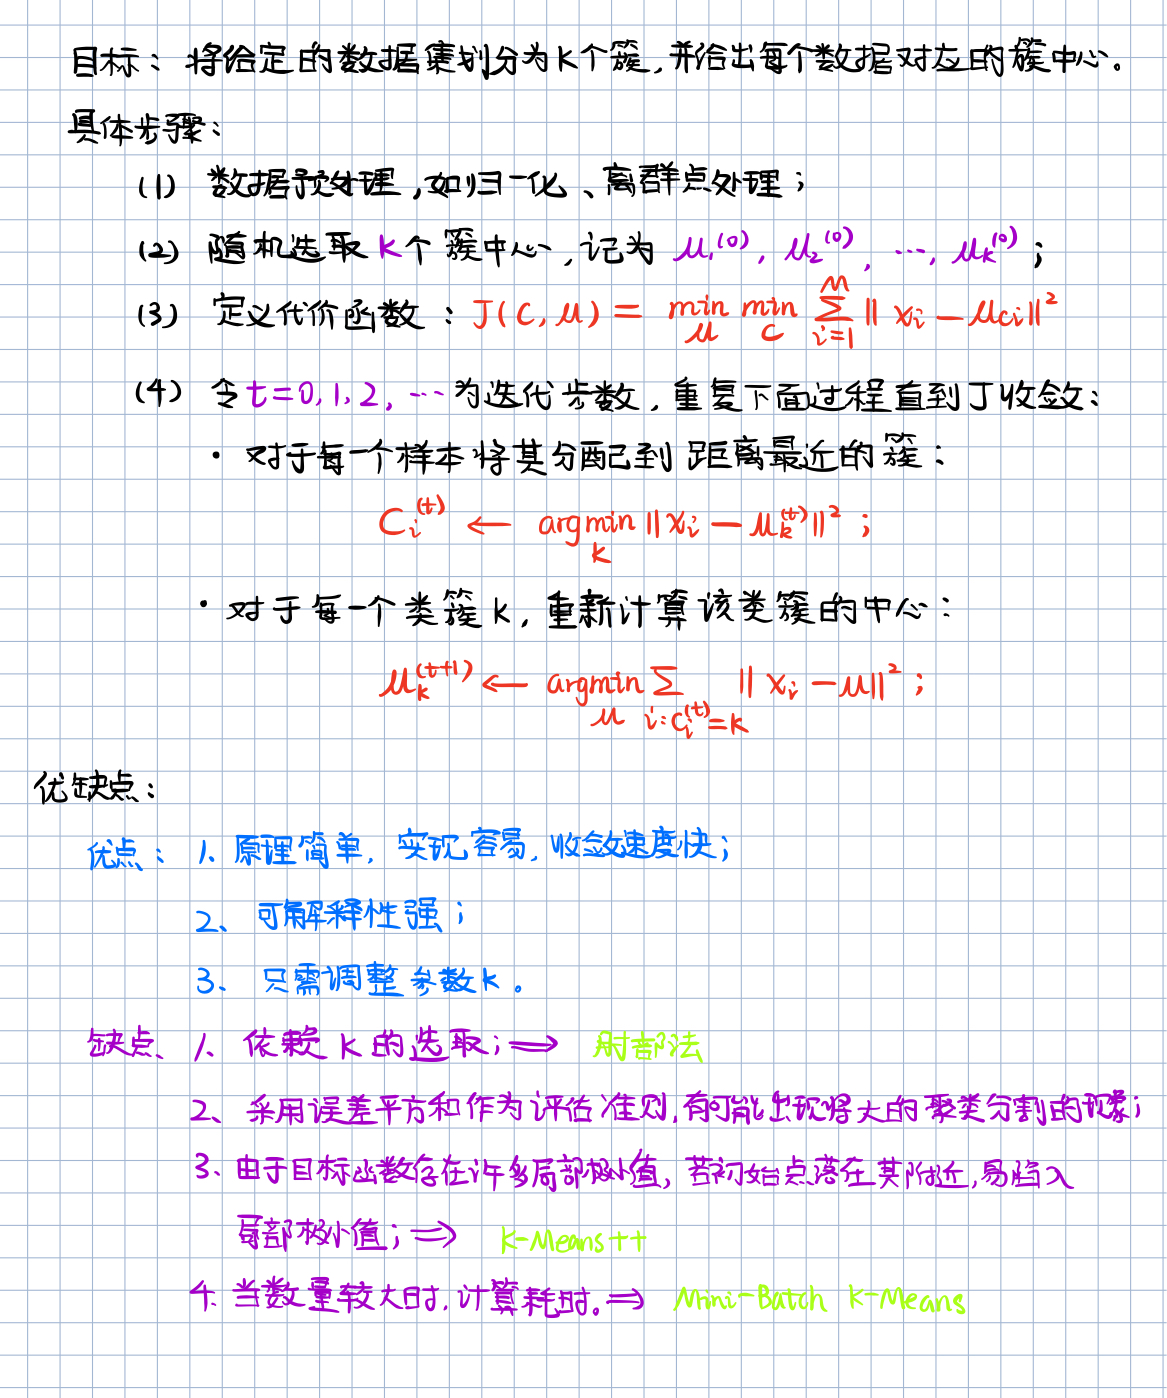 目标：将给定的数据集划分为K个簇,并给出每个数据对应的簇中心。
具体步骤：
(1) 数据预处理,如归一化、离群点处理;
(2) 随机选取 K个 簇中心,记为 μ₁⁽⁰⁾, μ₂⁽⁰⁾, ···, μₖ⁽⁰⁾;
(3) 定义代价函数：J(C,μ) = min_μ min_C ∑_{i=1}^{M} ‖xᵢ − μ_{ci}‖²
(4) 令 t=0,1,2, ··· 为迭代步数,重复下面过程直到J收敛：
· 对于每一个样本将其分配到 距离最近的簇：
C_i^{(t)} ← argmin_k ‖xᵢ − μ_k^{(t)}‖²;
· 对于每一个类簇k,重新计算该类簇的中心：
μ_k^{(t+1)} ← argmin_μ ∑_{i:C_i^{(t)}=k} ‖xᵢ − μ‖²;
优缺点：
优点：1、原理简单,实现容易,收敛速度快;
2、可解释性强;
3、只需调整参数k。
缺点、1、依赖 K的选取;⇒ 肘部法
2、采用误差平方和作为评估准则,有可能出现将大的聚类分割的现象;
3、由于目标函数存在许多局部极小值,若初始点落在其附近,易陷入
局部极小值;⇒ K-Means++
4. 当数量较大时,计算耗时。⇒ Mini-Batch K-Means